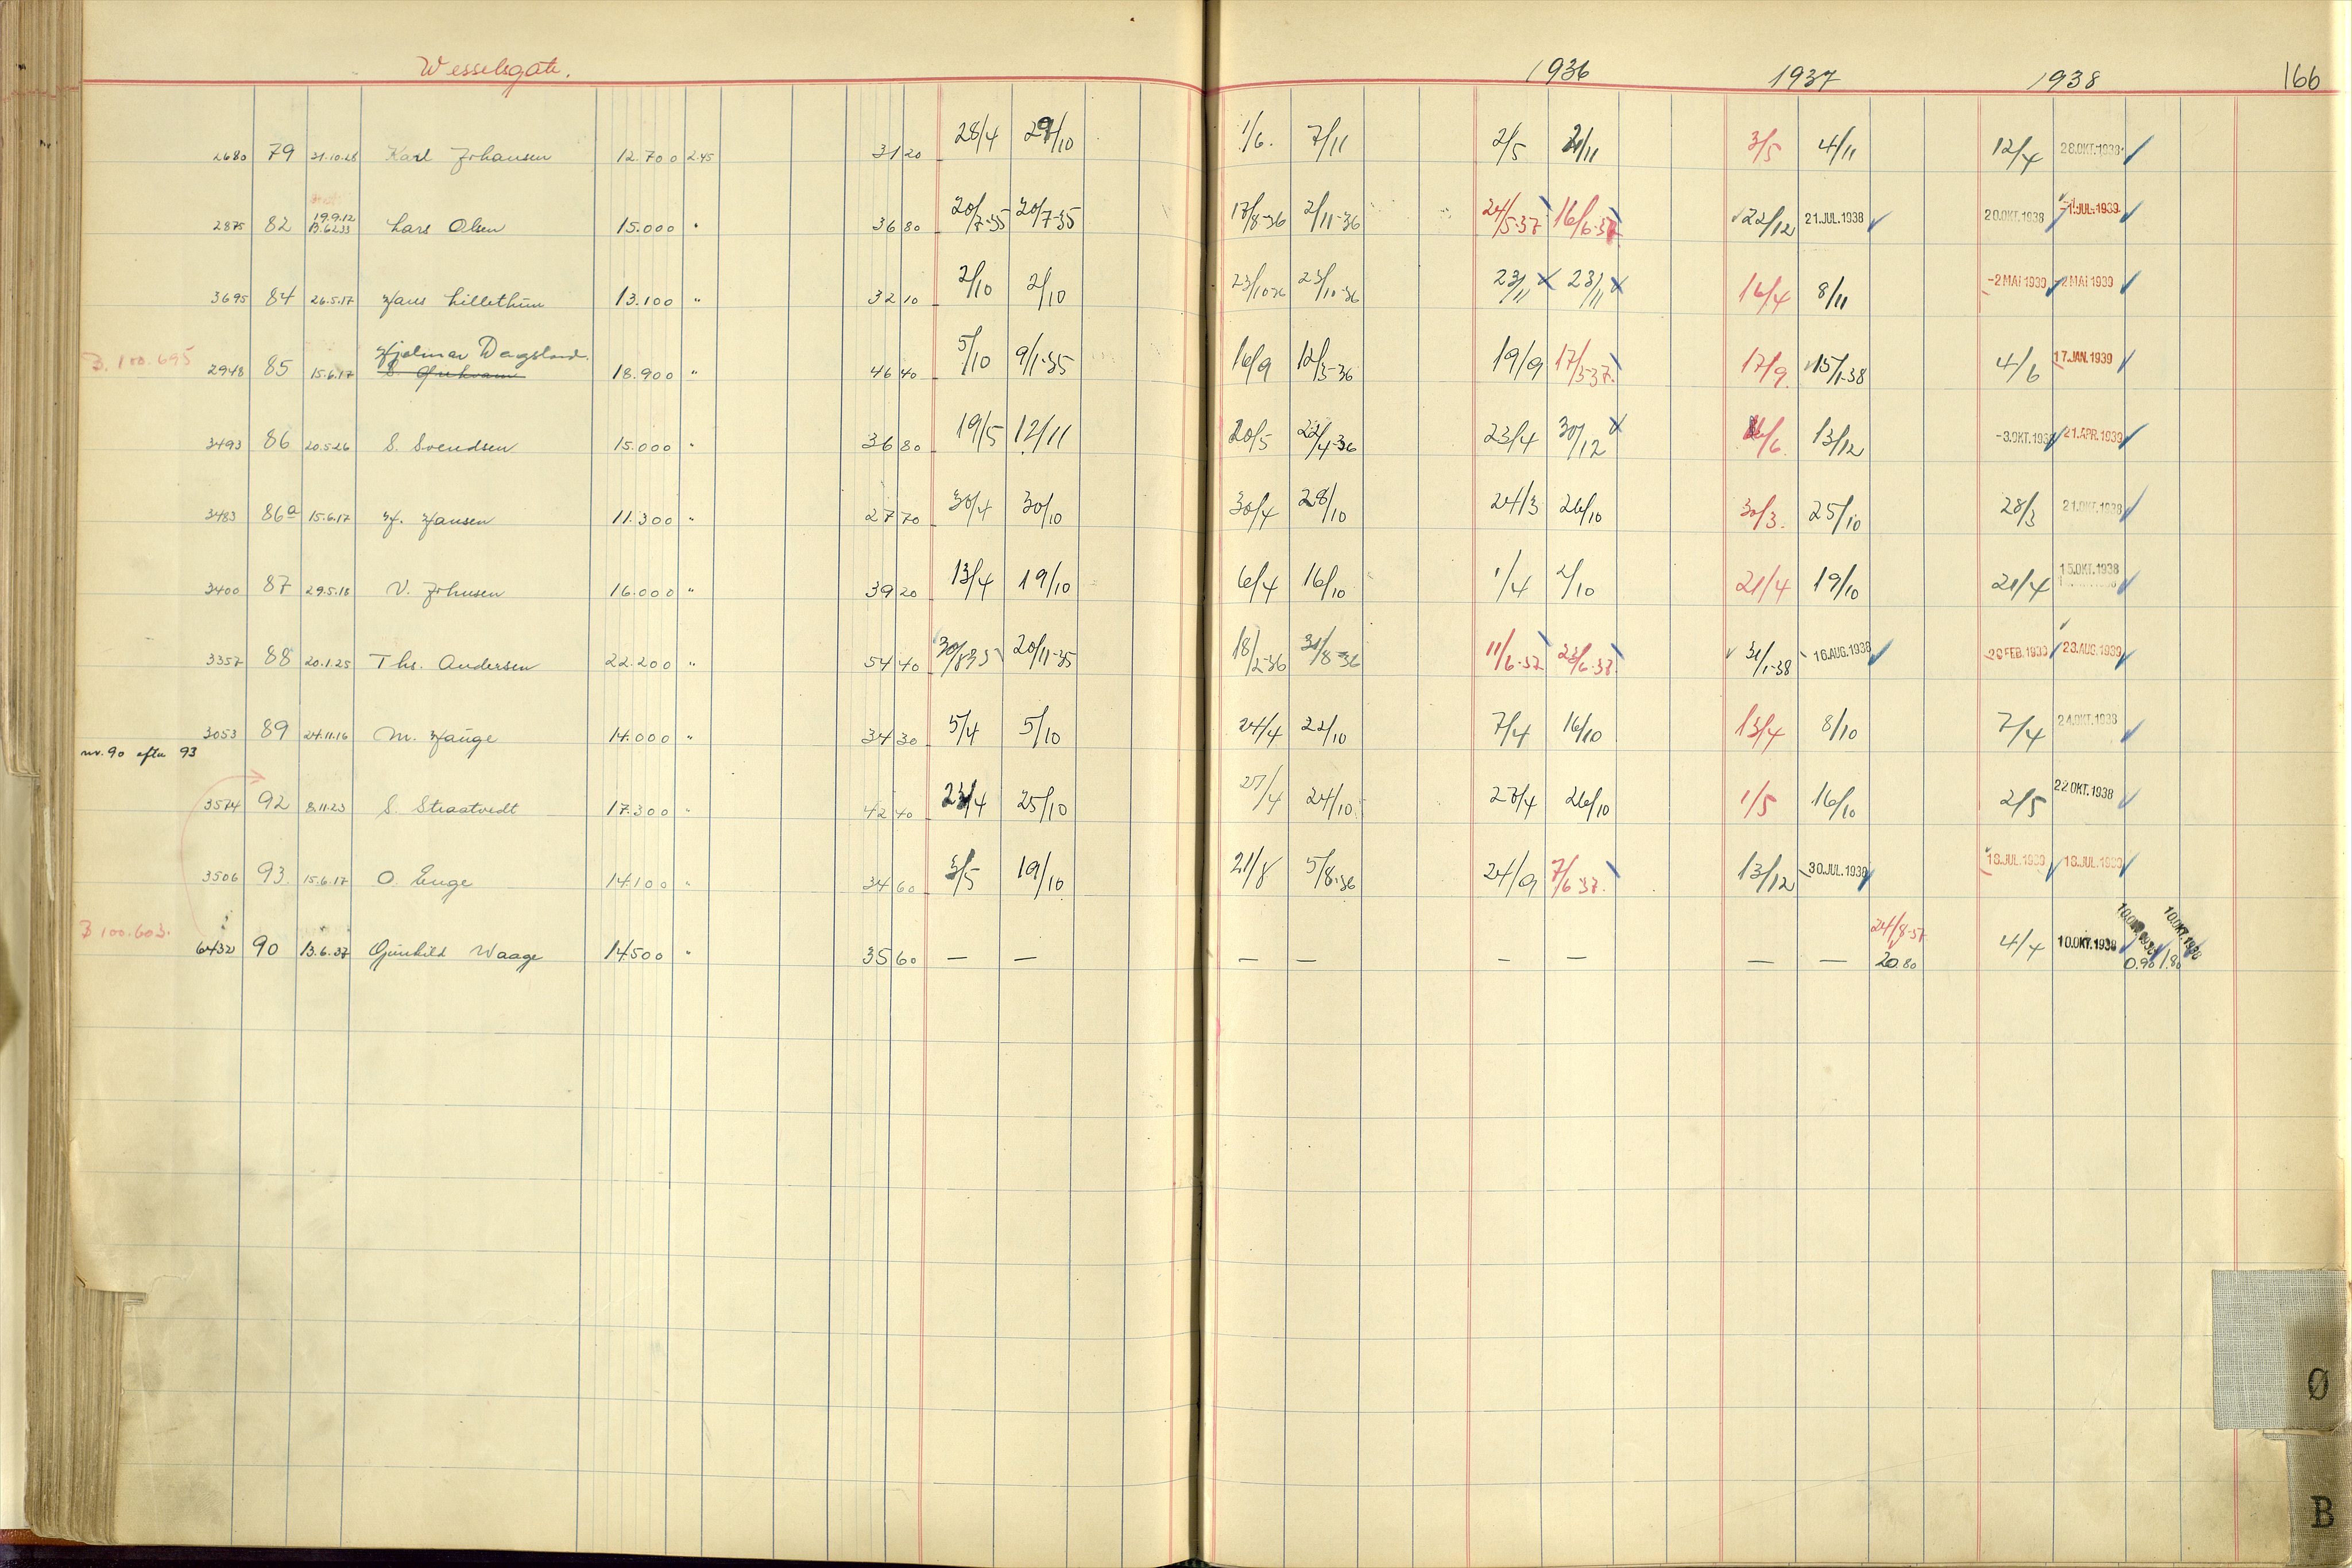 Wesselsgate. 1936 1937 1938 166
2680 79 21.10.28 Karl Johansen 12.700 2.45 31 20 28/4 29/10 1/6. 7/11 2/5 2/11 3/5 4/11 12/4 28.OKT.1938
19.9.12
2875 82 13.6.33 Lars Olsen 15.000 " 36 80 20/7-35 20/7-35 17/8-36 2/11-36 24/5-37 16/6-37 22/12 21.JUL.1938 20.OKT.1938 -1.JUL.1939
3695 84 26.5.17 Hans Lillethun 13.100 " 32 10 2/10 2/10 23/10-36 23/10-36 23/11 23/11 16/4 8/11 -2 MAI 1939 -2 MAI 1939
Hjalmar Dagsland.
B. 100.695 2948 85 15.6.17 18.900 " 46 40 5/10 9/1-35 16/9 12/3-36 19/9 17/3-37. 17/9. 15/1-38 4/6 17.JAN.1939
3493 86 20.5.26 S. Svendsen 15.000 " 36 80 19/5 12/11 20/5 22/4-36 23/4 30/12 /6. 13/12 -3.OKT.1938 21.APR.1939
3483 86a 15.6.17 H. Hansen 11.300 " 27 70 30/4 30/10 30/4 28/10 24/3 26/10 30/3. 25/10 28/3 21.OKT.1938
3400 87 29.5.18 V. Johnsen 16.000 " 39 20 13/4 19/10 6/4 16/10 1/4 2/10 21/4 19/10 21/4 15.OKT.1938
3357 88 20.1.25 Ths. Andersen 22.200 " 54 40 30/8-35 20/11-35 18/2-36 31/8-36 11/6-37 23/6-38. 31/1-38 16.AUG.1938 20 FEB.1939 23.AUG.1939
3053 89 24.11.16 M. Hauge 14.000 " 34 30 5/4 5/10 24/4 22/10 7/4 16/10 13/4 8/10 7/4 24.OKT.1938
nr. 90 efter 93
3574 92 8.11.23 S. Straatvedt 17.300 " 42 40 23/4 25/10 27/4 24/10 27/4 26/10 1/5 16/10 2/5 22 OKT.1938
3506 93 15.6.17 O. Enge 14.100 " 34 60 3/5 19/10 21/8 5/8-36 24/9 7/6-37. 13/12 30.JUL.1938 18.JUL.1939 18.JUL.1939
B 100.603. 24/8-37 10.OKT.1938 10.OKT.1938
6432 90 13.6.37 Gunhild Waage 14500 " 35 60 — — — — — — — — 20.80 4/4 10.OKT.1938 0.90 1.80
Ø
B